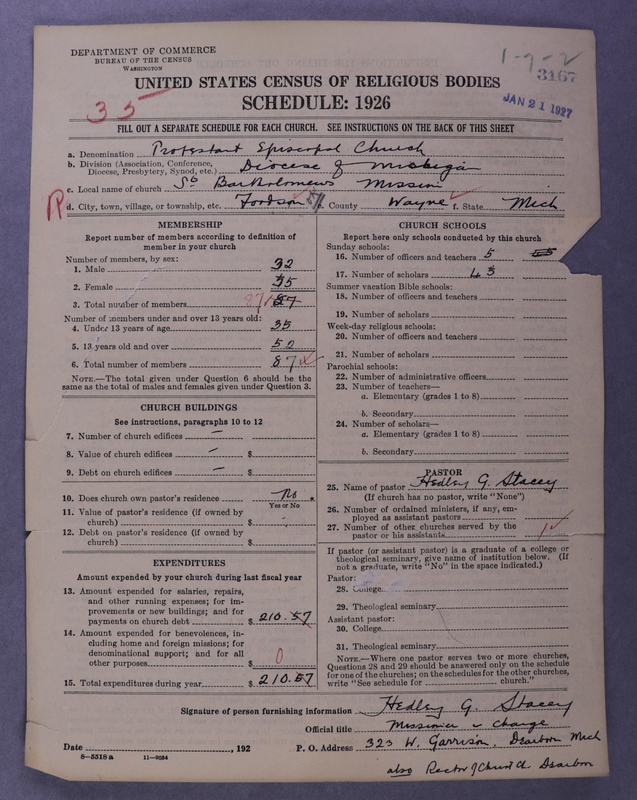 DEPARTMENT OF COMMERCE
BUREAU OF THE CENSUS
WASHINGTON
1-7-2
3167
JAN 21 1927
UNITED STATES CENSUS OF RELIGIOUS BODIES
35
SCHEDULE: 1926
FILL OUT A SEPARATE SCHEDULE FOR EACH CHURCH. SEE INSTRUCTIONS ON THE BACK OF THIS SHEET
a. Denomination Protestant Episcopal Church
b. Division (Association, Conference, Diocese, Presbytery, Synod, etc.) Diocese of Michigan
c. Local name of church St Bartholomews Mission
R
d. City, town, village, or township, etc. Fordson County Wayne f. State Mich
MEMBERSHIP
Report number of members according to definition of
member in your church
Number of members, by sex:
1. Male 32
2. Female
3. Total number of members 87
Number of members under and over 13 years old:
4. Under 13 years of age 35
5. 13 years old and over 52
6. Total number of members 87
NOTE.—The total given under Question 6 should be the
same as the total of males and females given under Question 3.
CHURCH BUILDINGS
See instructions, paragraphs 10 to 12
7. Number of church edifices —
8. Value of church edifices — $
9. Debt on church edifices — $
10. Does church own pastor's residence No.
Yes or No
11. Value of pastor's residence (if owned by
church) $
12. Debt on pastor's residence (if owned by
church) $
EXPENDITURES
Amount expended by your church during last fiscal year
13. Amount expended for salaries, repairs,
and other running expenses; for im-
provements or new buildings; and for
payments on church debt $ 210.57
14. Amount expended for benevolences, in-
cluding home and foreign missions; for
denominational support; and for all
other purposes $ 0
15. Total expenditures during year $ 210.57
CHURCH SCHOOLS
Report here only schools conducted by this church
Sunday schools:
16. Number of officers and teachers 5
17. Number of scholars 43
Summer vacation Bible schools:
18. Number of officers and teachers
19. Number of scholars
Week-day religious schools:
20. Number of officers and teachers
21. Number of scholars
Parochial schools:
22. Number of administrative officers
23. Number of teachers—
a. Elementary (grades 1 to 8)
b. Secondary
24. Number of scholars—
a. Elementary (grades 1 to 8)
b. Secondary
PASTOR
25. Name of pastor Hedley G. Stacey
(If church has no pastor, write "None")
26. Number of ordained ministers, if any, em-
ployed as assistant pastors
27. Number of other churches served by the
pastor or his assistants 1
If pastor (or assistant pastor) is a graduate of a college or
theological seminary, give name of institution below. (If
not a graduate, write "No" in the space indicated.)
Pastor:
28. College
29. Theological seminary
Assistant pastor:
30. College
31. Theological seminary
NOTE.—Where one pastor serves two or more churches,
Questions 28 and 29 should be answered only on the schedule
for one of the churches; on the schedules for the other churches,
write "See schedule for church."
Signature of person furnishing information Hedley G. Stacey
Official title Missioner in Charge
Date , 192 P. O. Address 323 W. Garrison, Dearborn Mich
8—5518 a 11—9254
also Rector of Christ Ch. Dearborn